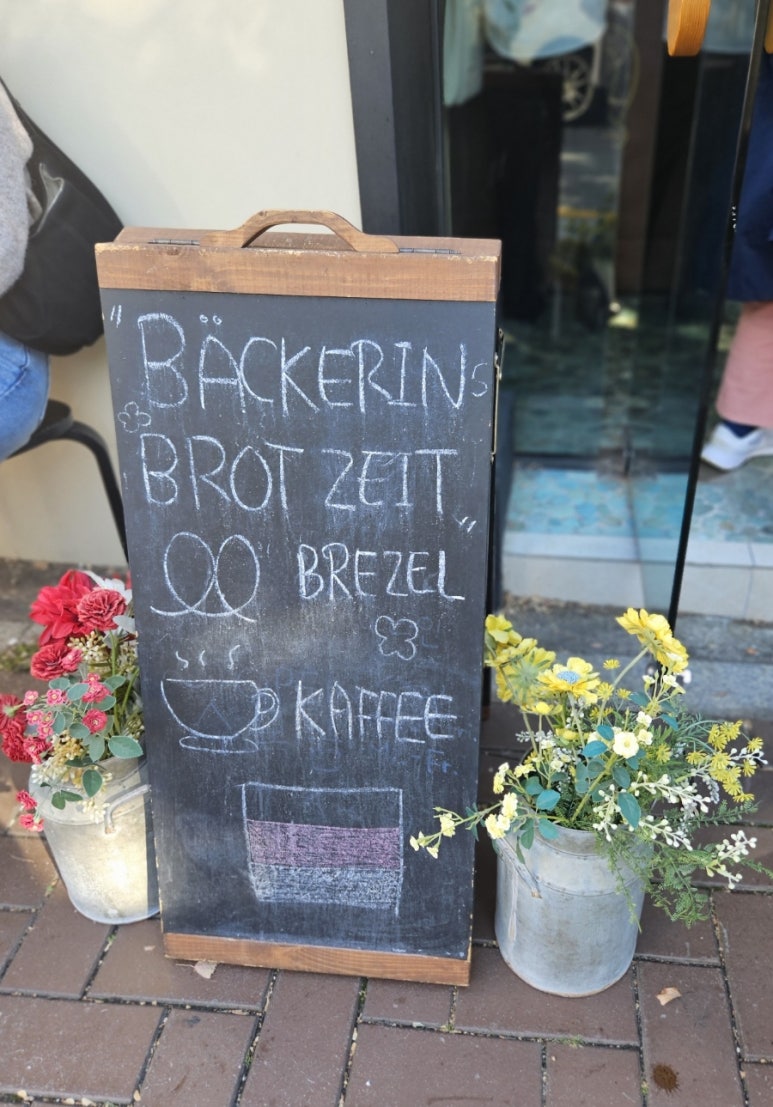 "BÄCKERINS
BROTZEIT"
BREZEL
KAFFEE